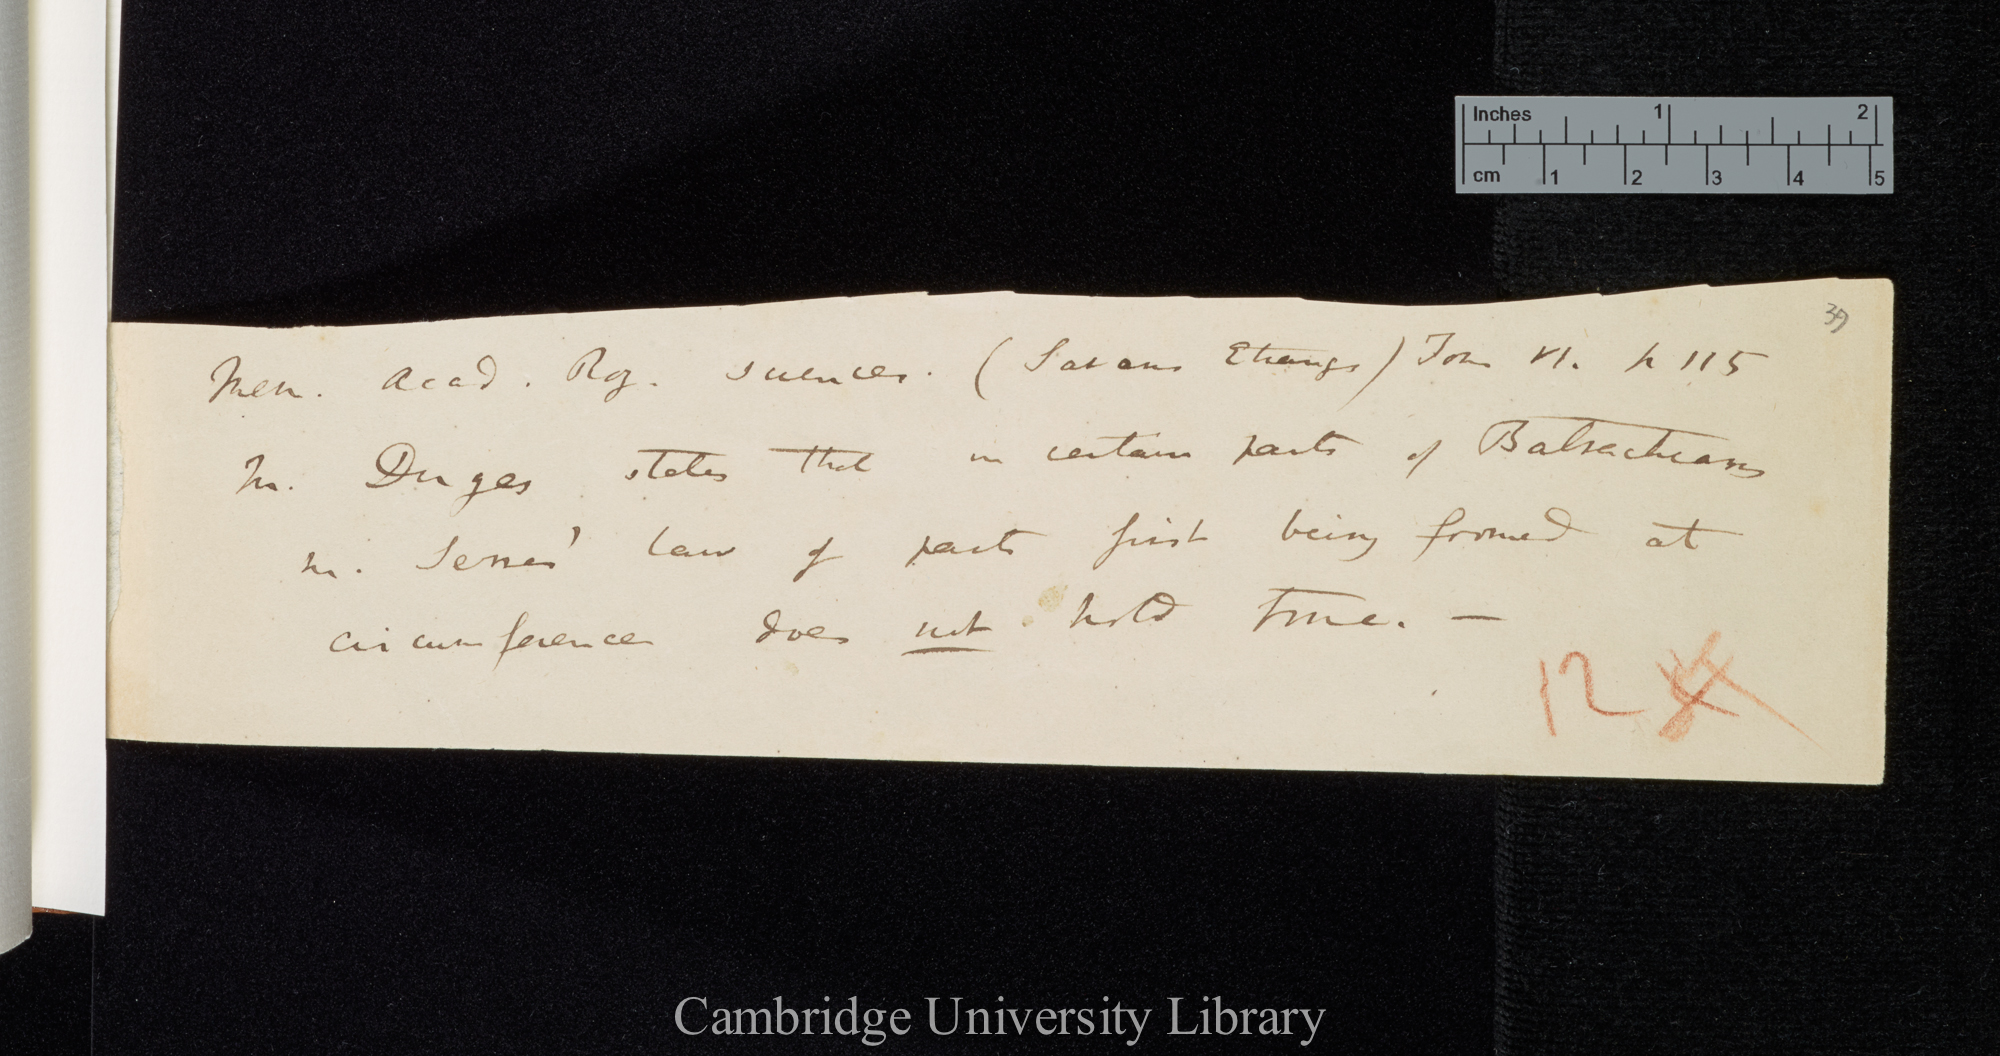 Inches 1 2
cm 1 2 3 4 5
39
Mem. Acad. Roy. Sciences. (Savans Etrangs) Tom VI. p 115
M. Duges states that in certain parts of Batrachians
M. Serres' law of parts first being formed at
circumference does not hold true. —
12
Cambridge University Library